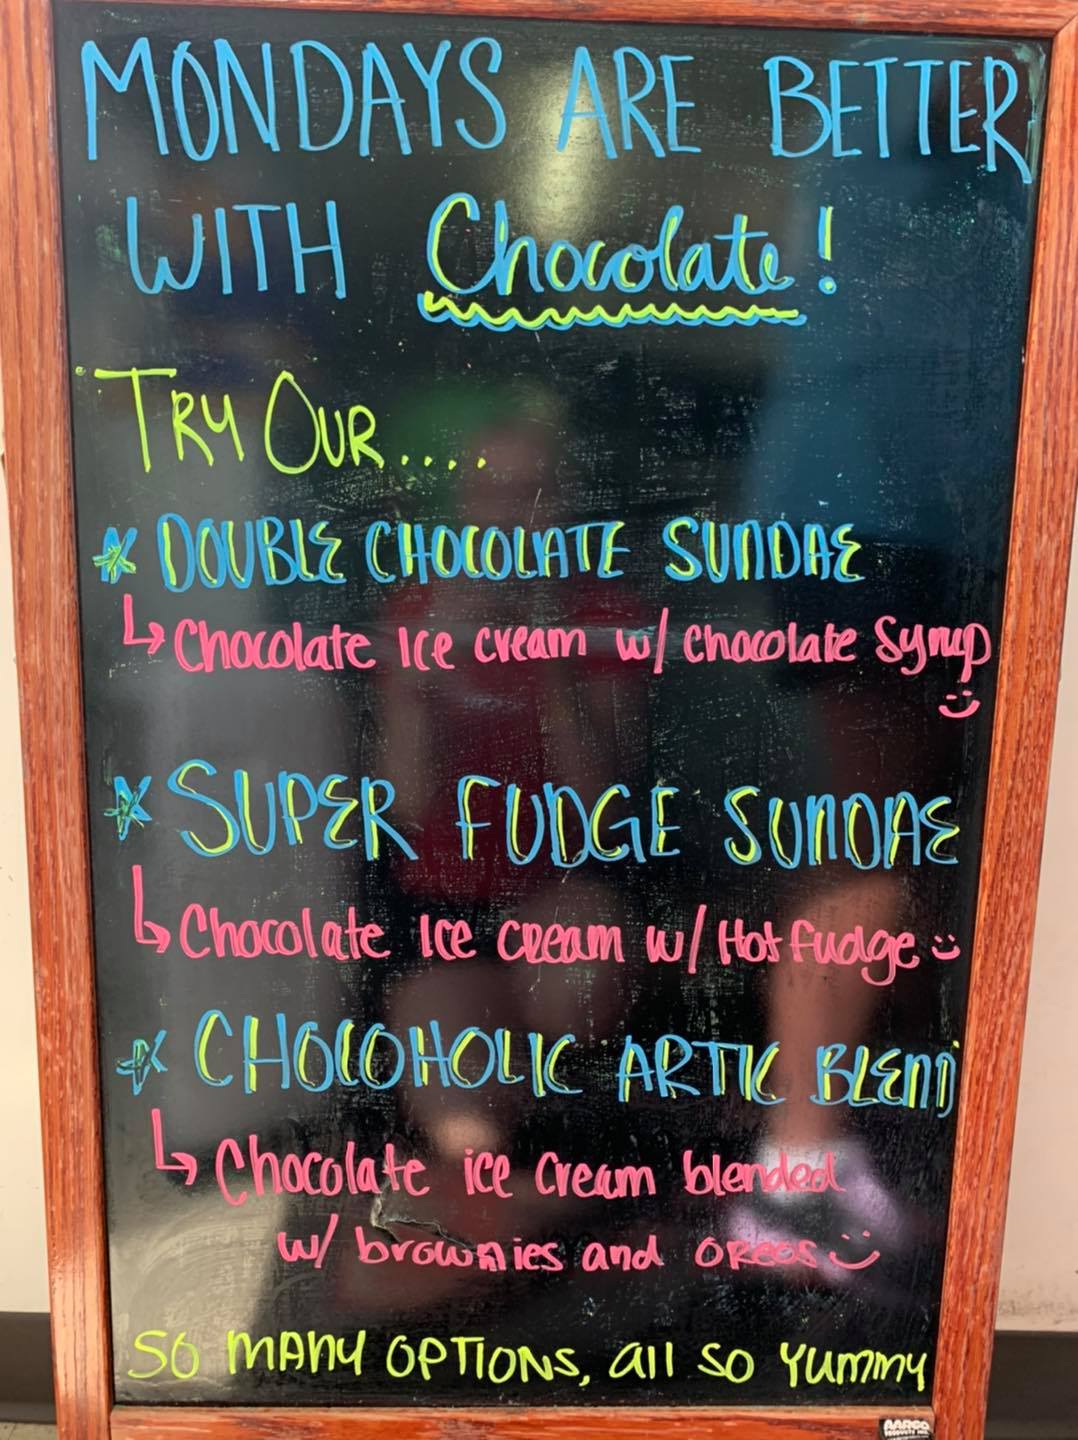 MONDAYS ARE BETTER
WITH Chocolate!
TRY OUR....
* DOUBLE CHOCOLATE SUNDAE
↳ Chocolate Ice cream w/ chocolate Syrup
:)
* SUPER FUDGE SUNDAE
↳ Chocolate Ice cream w/ Hot fudge :)
* CHOCOHOLIC ARTIC BLEND
↳ Chocolate ice cream blended
w/ brownies and oreos :)
SO MANY OPTIONS, all SO YUMMY
AARCO